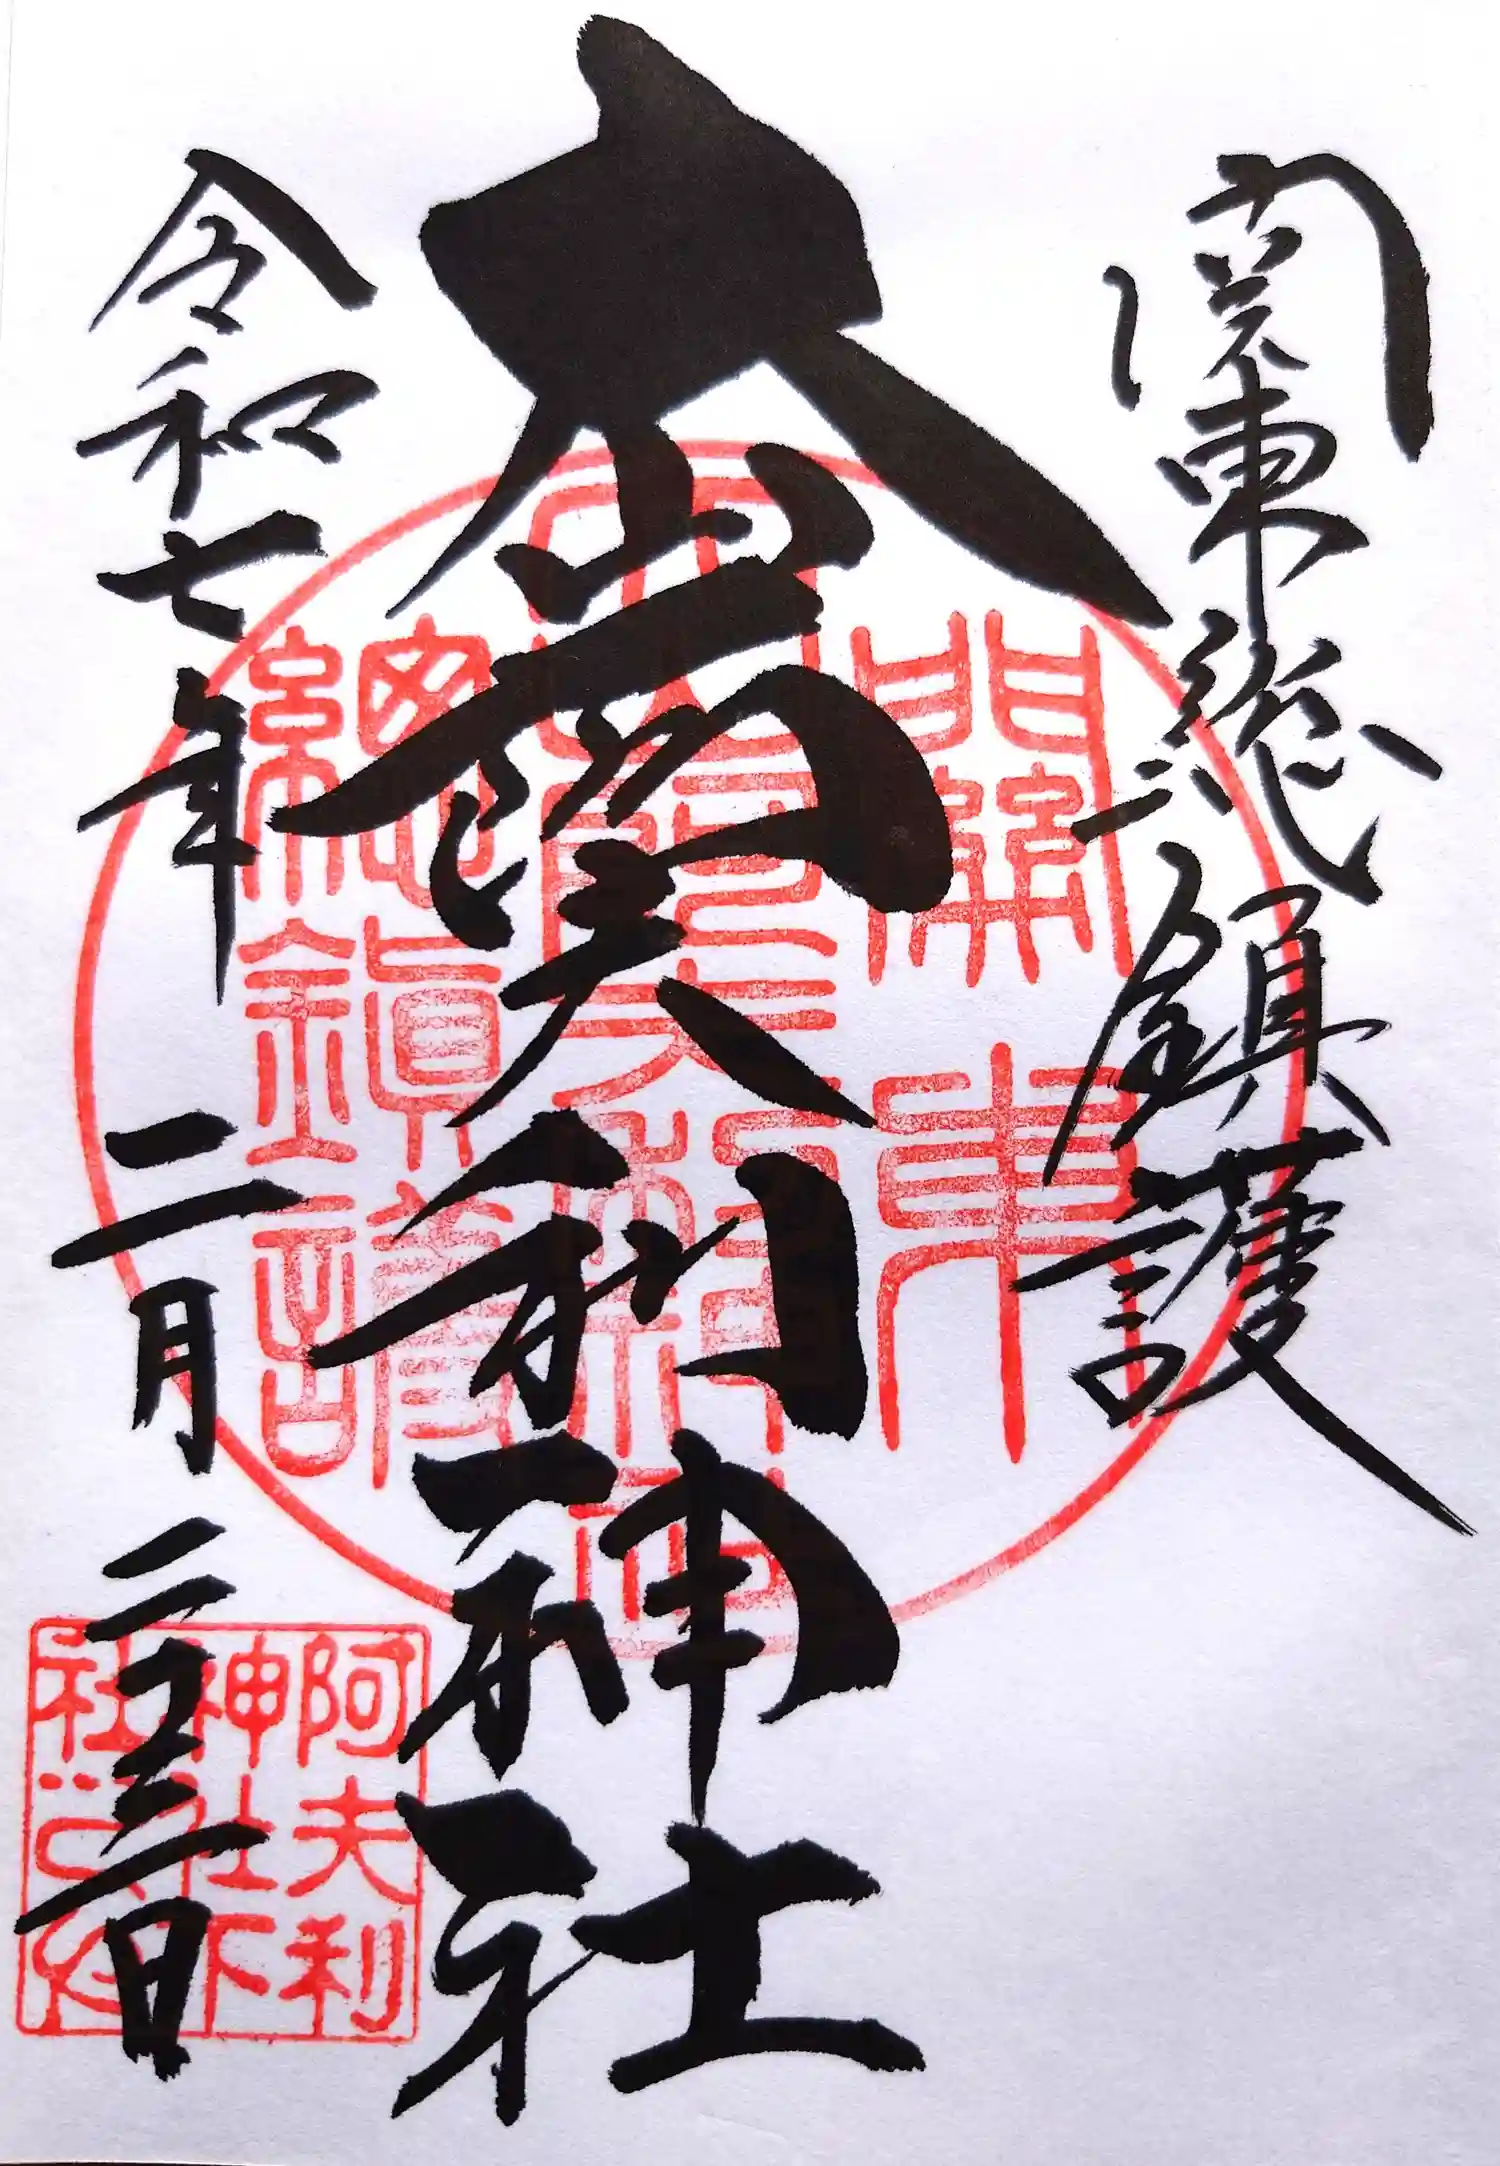 関東総鎮護
大山阿夫利神社
令和七年二月二十三日
關東
大山阿夫利神社
總鎮護
阿夫利
神社下
社之印